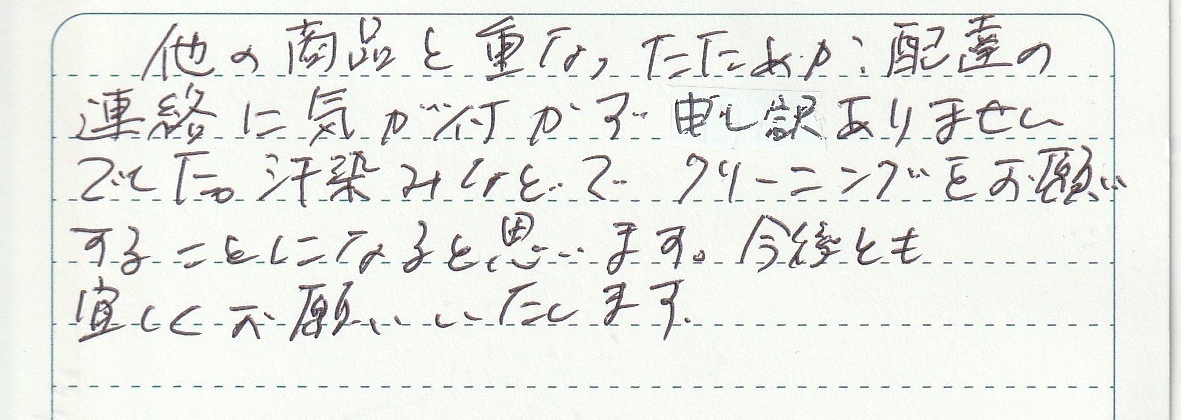 他の商品と重なったためか配達の
連絡に気が付かず申し訳ありません
でした。汗染みなどでクリーニングをお願い
することになると思います。今後とも
宜しくお願いいたします。